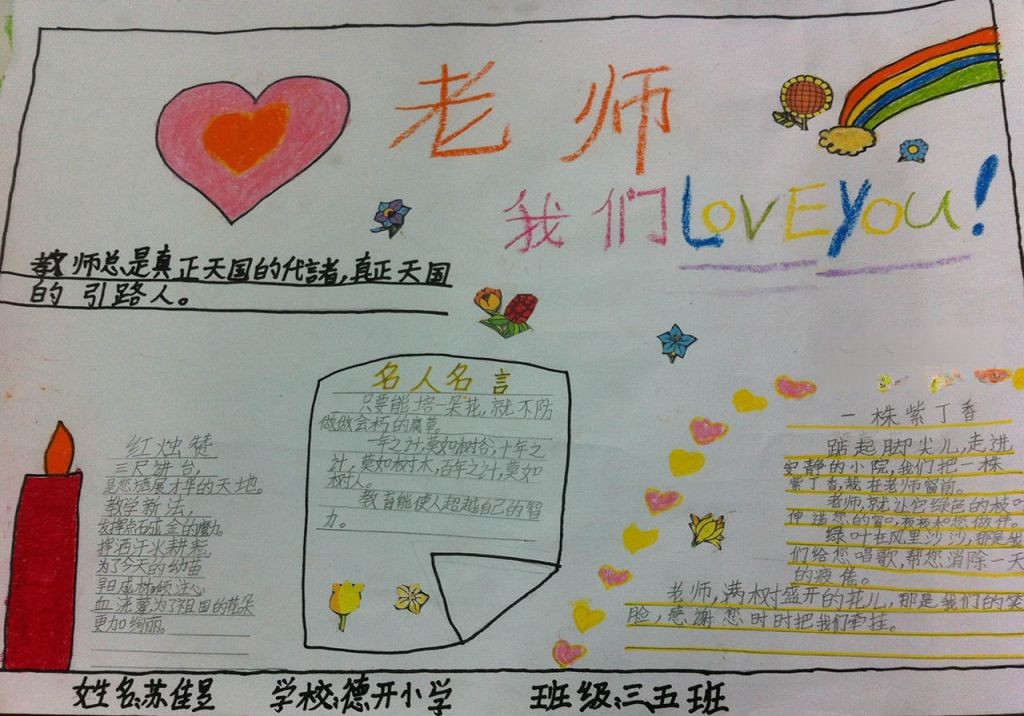 老师
我们LOVE YOU!
教师总是真正天国的代言者,真正天国
的引路人。
名人名言
只要能培一朵花,就不防
做做会朽的腐草。
一年之计,莫如树谷,十年之
计,莫如树木,百年之计,莫如
树人。
教育能使人超越自己的智
力。
红烛赞
三尺讲台,
是您施展才华的天地。
教学新法,
发挥点石成金的魔力。
挥洒汗火耕耘,
为了今天的幼苗
早日成材倾注心
血,浇灌,为了祖国的花朵
更加绚丽。
一株紫丁香
踮起脚尖儿,走进
安静的小院,我们把一株
紫丁香,栽在老师窗前。
老师,就让它绿色的枝叶
伸进您的窗口,夜夜和您做伴。
绿叶在风里沙沙,那是我
们给您唱歌,帮您消除一天
的疲倦。
老师,满树盛开的花儿,那是我们的笑
脸,感谢您时时把我们牵挂。
姓名:苏佳昱 学校:德开小学 班级:三五班